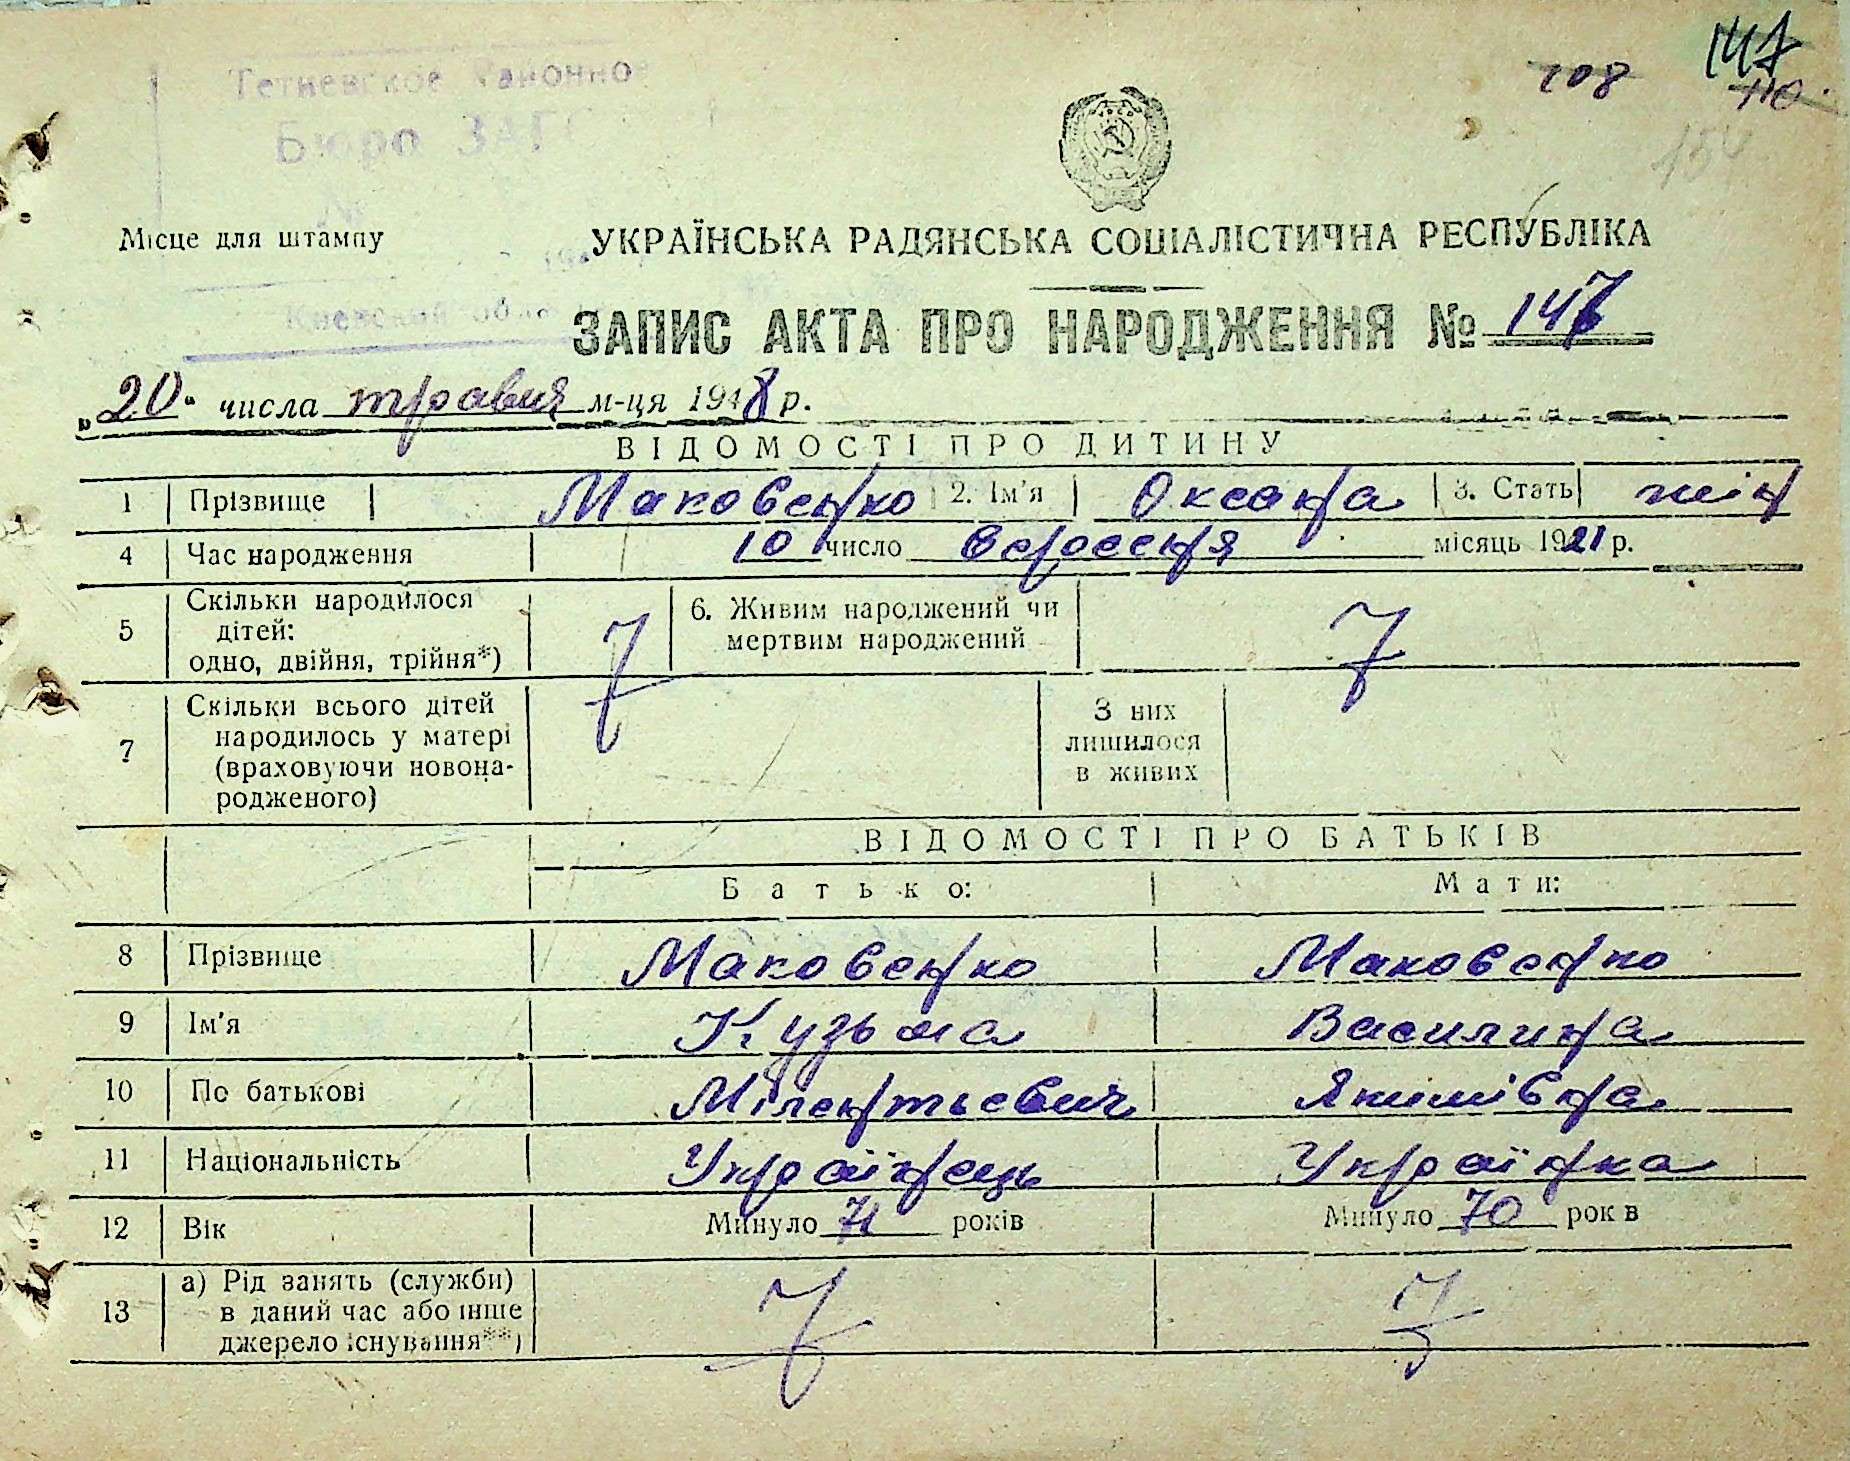 108
147
110
154
Бюро ЗАГС
Місце для штампу
УКРАЇНСЬКА РАДЯНСЬКА СОЦІАЛІСТИЧНА РЕСПУБЛІКА
ЗАПИС АКТА ПРО НАРОДЖЕННЯ № 147
„20“ числа травня м-ця 1948 р.
ВІДОМОСТІ ПРО ДИТИНУ
1 Прізвище Маковенко 2. Ім'я Оксана 3. Стать жін
4 Час народження 10 число вересня місяць 1921 р.
5 Скільки народилося дітей: одно, двійня, трійня*) 6. Живим народжений чи мертвим народжений
7 Скільки всього дітей народилось у матері (враховуючи новонародженого) З них лишилося в живих
ВІДОМОСТІ ПРО БАТЬКІВ
Батько: Мати:
8 Прізвище Маковенко Маковенко
9 Ім'я Кузьма Василина
10 По батькові Мілентьевич Якимівна
11 Національність Українець Українка
12 Вік Минуло 71 років Минуло 70 років
13 а) Рід занять (служби) в даний час або інше джерело існування**)